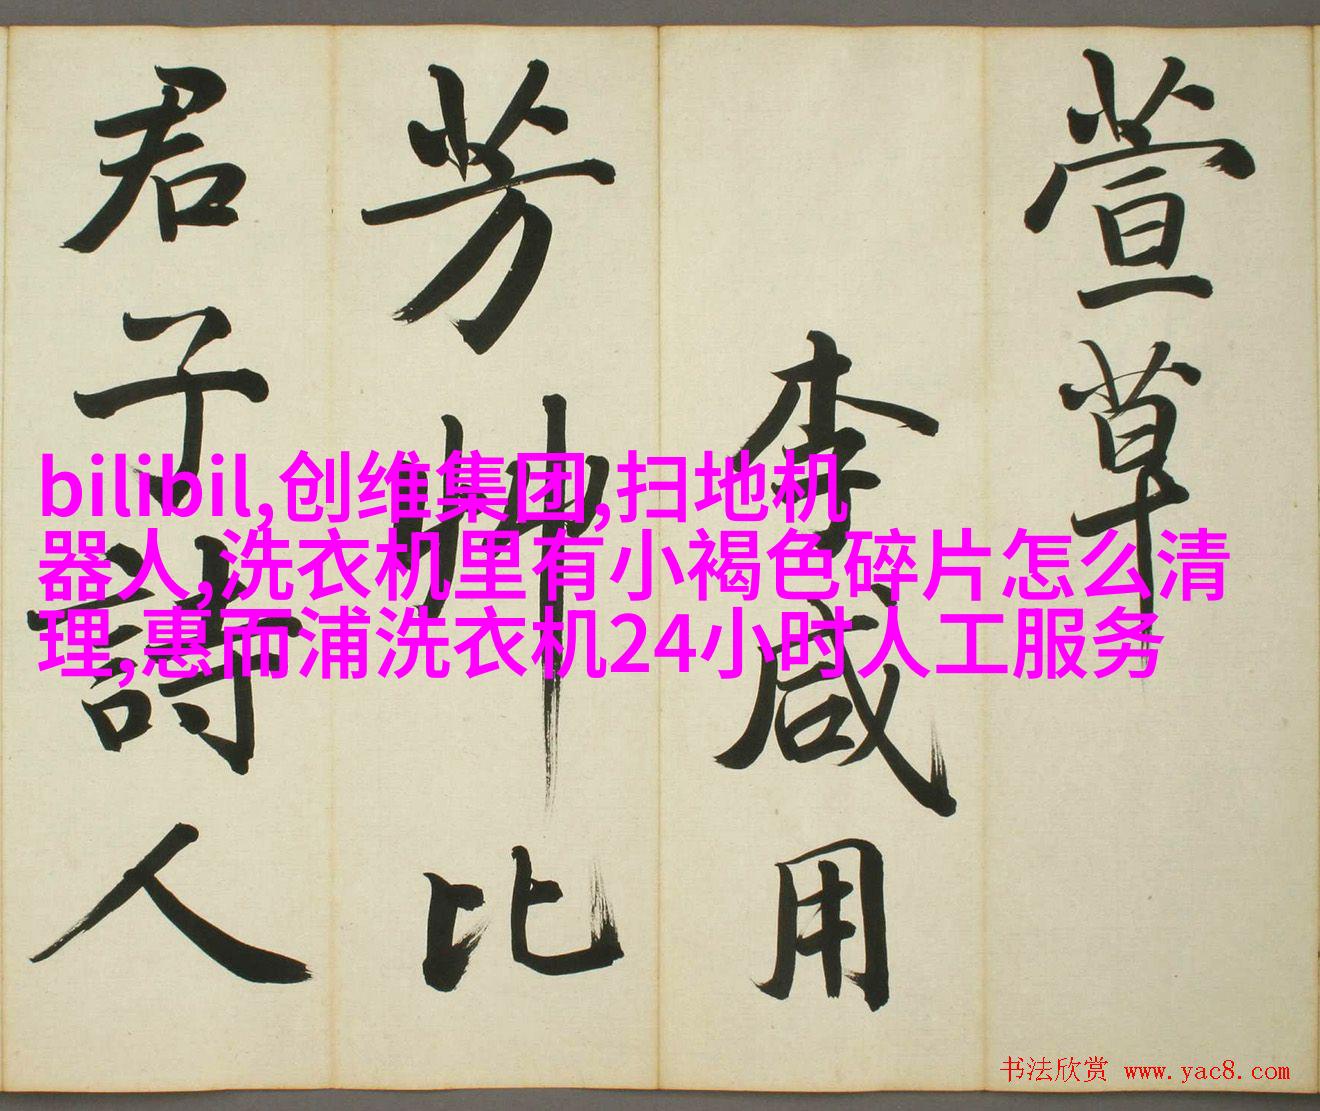 萱草
李咸用
芳艸比
君子詩人
bilibil,创维集团,扫地机
器人,洗衣机里有小褐色碎片怎么清
理,惠而浦洗衣机24小时人工服务
书法欣赏 www.yac8.com